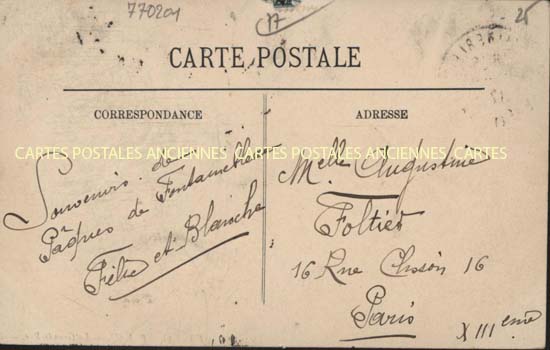 770204
17
25
CARTE POSTALE
CORRESPONDANCE
ADRESSE
CARTES POSTALES ANCIENNES CARTES POSTALES ANCIENNES CARTES
Souvenirs de
Pâques de Fontainebleau
Félix et Blanche
Melle Augustine
Foltier
16 Rue Choson 16
Paris
XIIIeme